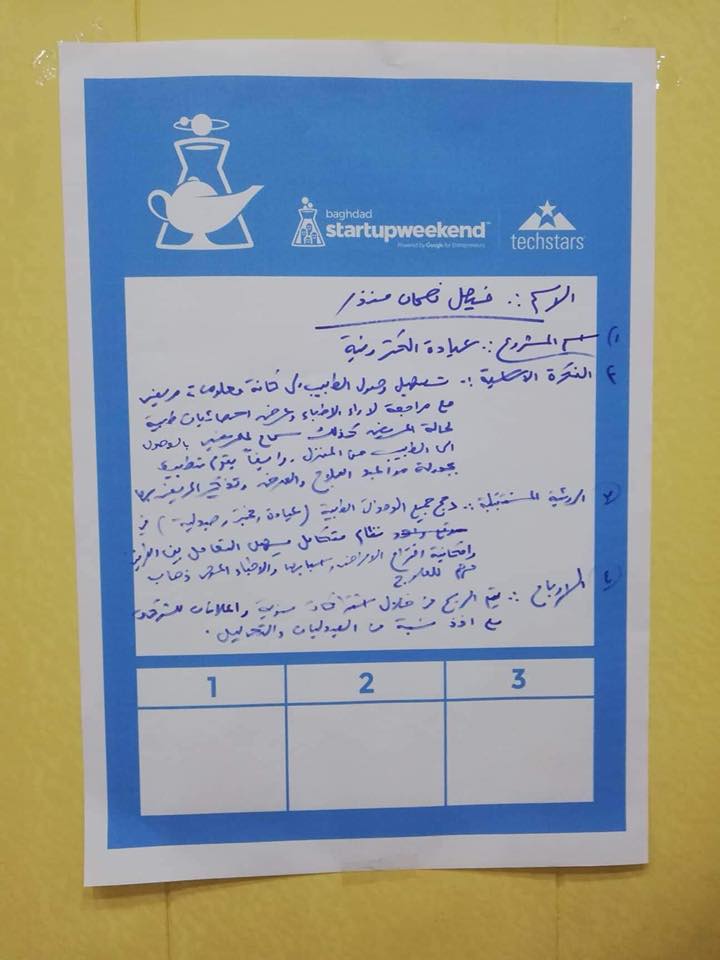 baghdad
startupweekend™
Powered by Google for Entrepreneurs
techstars
الاسم :. فيصل نعمان منذر /
١) اسم المشروع :. عيادة الكترونية
٢ الفكرة الاساسية :. تسهيل وصول الطبيب الى كافة معلومات مريضه
مع مراجعة لاراء الاطباء وعرض احصائيات طبية
لحالة المريض كذلك سماح للمريض بالوصول
الى الطبيب من المنزل . وايضاً يقوم تطبيق
بجدولة مواعيد العلاج والمرض وتذكير المريض بها
٣ الرؤية المستقبلية :. دمج جميع الطبية (عيادة ومختبر وصيدلية) في
نظام متكامل يسهل التعامل بين الطرفين
وامكانية اقتراح الامراض واسبابها والاطباء ذهاب
للعلاج
٤ الارباح :. يتم الربح من خلال اشتراكات سنوية واعلانات للشركات
مع اخذ نسبة من الصيدليات والتحاليل .
1 2 3